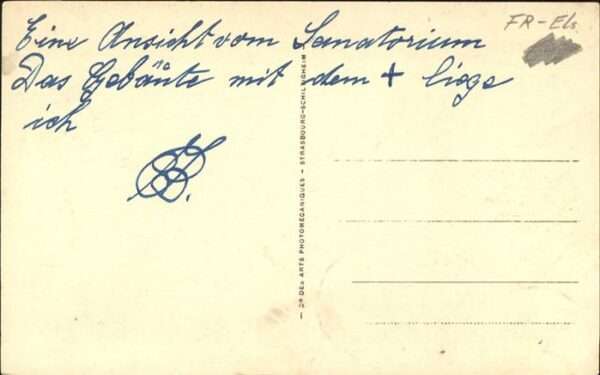 Eine Ansicht vom Sanatorium
Das Gebäute mit dem + liege
ich
FR-Els
— Dᴿ DES ARTS PHOTOMÉCANIQUES - STRASBOURG-SCHILTIGHEIM